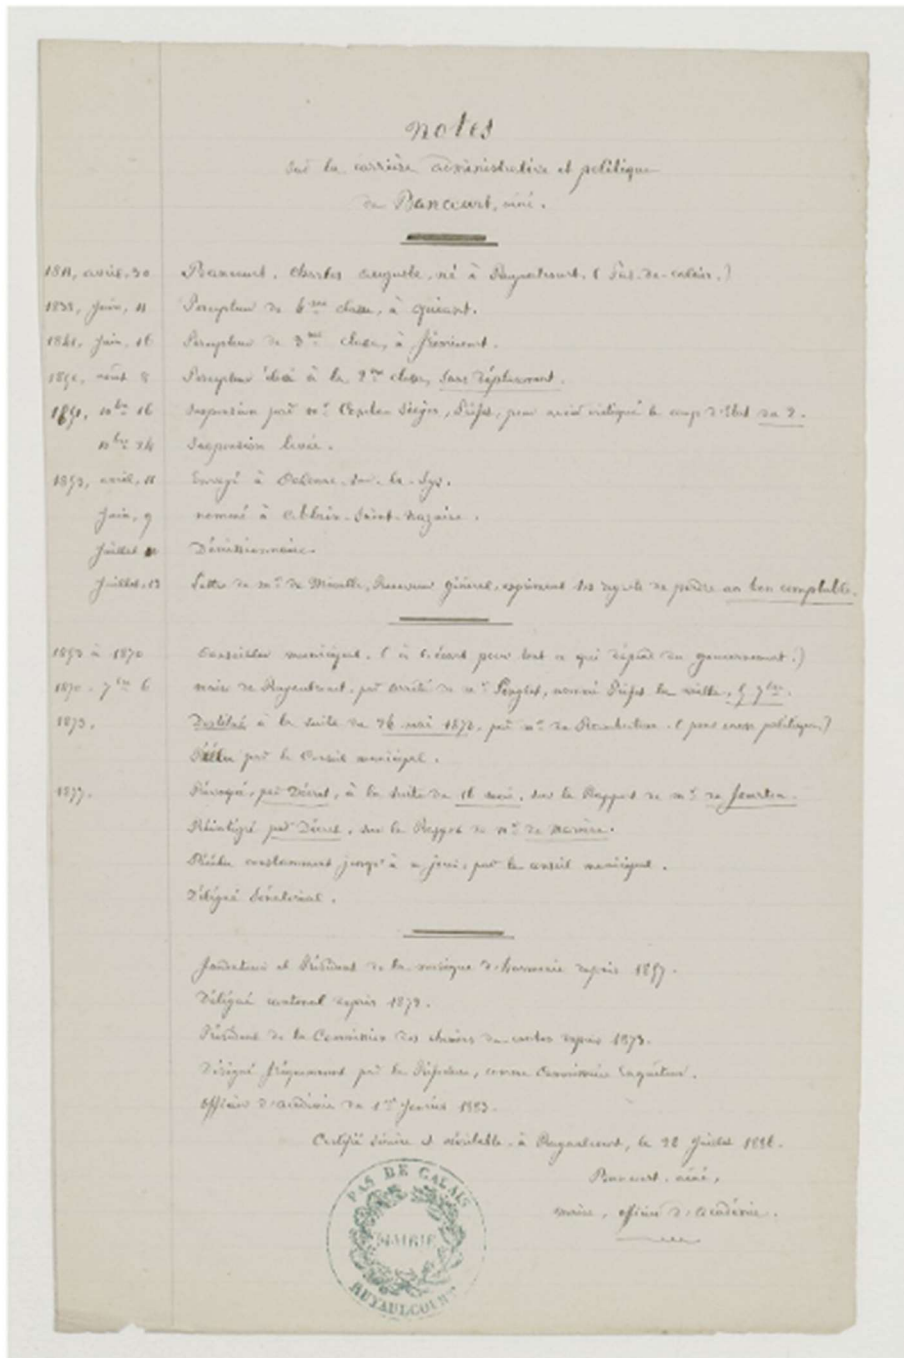 Notes
sur la carrière administrative et politique
de Bancourt, aîné.
1811, avril, 30 Bancourt, Charles Auguste, né à Ruyaulcourt. (Pas-de-Calais.)
1838, Juin, 11 Percepteur de 4me classe, à Quéant.
1841, Juin, 16 Percepteur de 3me classe, à Frémicourt.
1850, août 8 Percepteur élevé à la 2me classe, sans déplacement.
1851, Xbre 16 Suspension par Mr , Préfet, pour avoir critiqué le coup d'Etat du 2.
Xbre 24 Suspension levée.
1853, avril, 11 Envoyé à sur-la-Lys.
Juin, 9 nommé à Ablain-Saint-Nazaire.
Juillet Démissionnaire.
Juillet, 13 Lettre de Mr de , Receveur général, exprimant les regrets de perdre un bon comptable.
1853 à 1870 Conseiller municipal. ( à l'écart pour tout ce qui dépend du gouvernement.)
1870 - 7bre 6 maire de Ruyaulcourt, par arrêté de Mr Lenglet, nommé Préfet la veille, 5 7bre.
1873. Destitué à la suite du 24 mai 1873, par Mr de . (pour cause politique.)
Réélu par le Conseil municipal.
1877. Révoqué, par Décret, à la suite du 16 mai, sur le Rapport de Mr de Fourtou.
Réintégré par Décret, sur le Rapport de Mr de Marcère.
Réélu constamment jusqu'à ce jour, par le conseil municipal.
Délégué Sénatorial.
Fondateur et Président de la musique d'harmonie depuis 1857.
Délégué cantonal depuis 1873.
Président de la Commission des chemins depuis 1873.
Désigné fréquemment par la Préfecture, comme Commissaire Enquêteur.
Officier d'académie du 1er Janvier 1883.
Certifié sincère et véritable. à Ruyaulcourt, le 28 Juillet
Bancourt, aîné,
maire, officier d'académie.
PAS DE CALAIS
MAIRIE
RUYAULCOURT